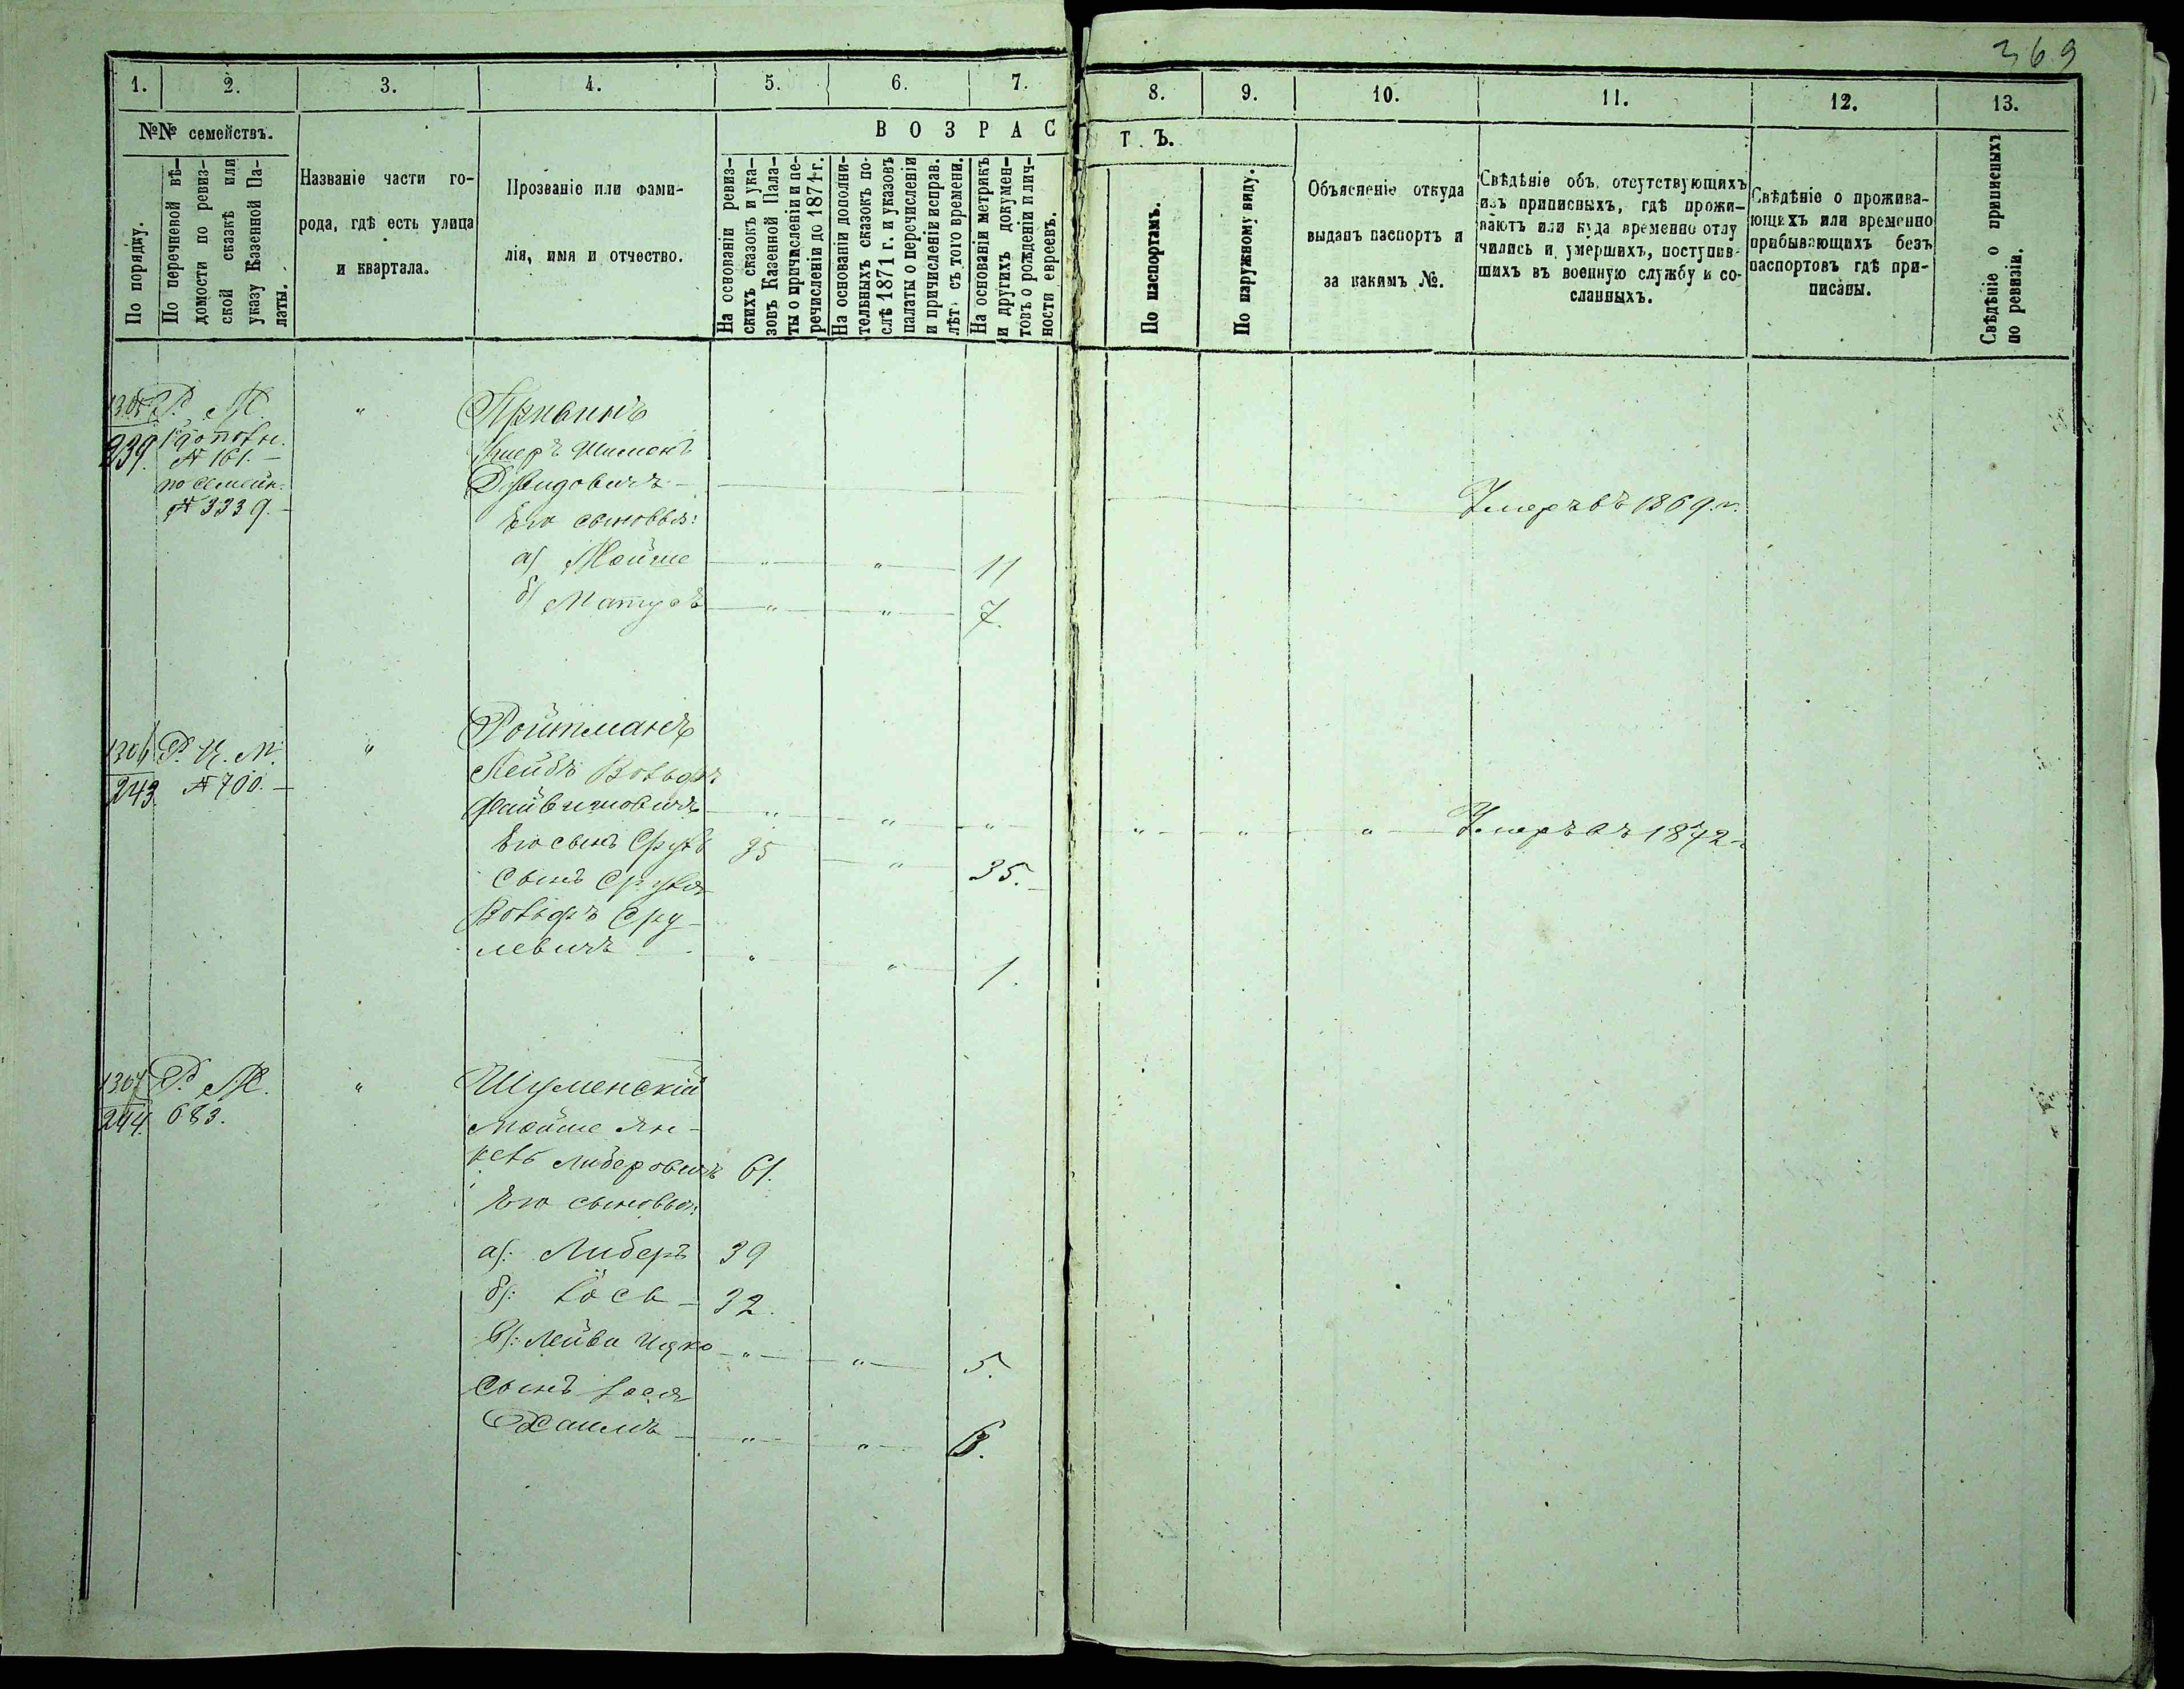 369
1. 2. 3. 4. 5. 6. 7. 8. 9. 10. 11. 12. 13.
№№ семействъ.
По порядку.
По перечневой вѣ-
домости по ревиз-
ской сказкѣ или
указу Казенной Па-
латы.
Названіе части го-
рода, гдѣ есть улица
и квартала.
Прозваніе или фами-
лія, имя и отчество.
ВОЗРАСТЪ.
На основаніи ревиз-
скихъ сказокъ и ука-
зовъ Казенной Пала-
ты о причисленіи и пе-
речисленіи до 1871 г.
На основаніи дополни-
тельныхъ сказокъ по-
слѣ 1871 г. и указовъ
палаты о перечисленіи
и причисленіе исправ.
лѣт съ того времени.
На основаніи метрикъ
и другихъ докумен-
товъ о рожденіи и лич-
ности евреевъ.
По паспортамъ.
По наружному виду.
Объясненіе откуда
выданъ паспортъ и
за какимъ №.
Свѣдѣніе объ отсутствующихъ
изъ приписныхъ, гдѣ прожи-
ваютъ или куда временно отлу
чились и умершихъ, поступив-
шихъ въ военную службу и со-
сланныхъ.
Свѣдѣніе о прожива-
ющихъ или временно
прибывающихъ безъ
паспортовъ гдѣ при-
писаны.
Свѣдѣніе о приписныхъ
по ревизіи.
1305 Р. М. " Привинъ
239. №161.- Шименъ
по семейн. Дувидовичъ - Умеръ въ 1869 г.
№ 3339. - Его сыновья:
а) Мойше " " 11
б) Матусъ " " 7.
1306 Р. Ц. М. " Ройтманъ
243. № 700. - Лейбъ Вольфъ
Файвишовичъ " " " " " " Умеръ въ 1872 г.
Его сынъ Сруль 35 " 35.
Сынъ Сруля
Вольфъ Сру-
левичъ " " 1.
1307 Р. М. " Шуменскій
244. 683. Мойше Ян-
кель Либеровичъ 61.
Его сыновья:
а): Либеръ 39
б): Іось - 32.
в): Лейба Ицко " " 5.
Сынъ Іося
Хаимъ " "